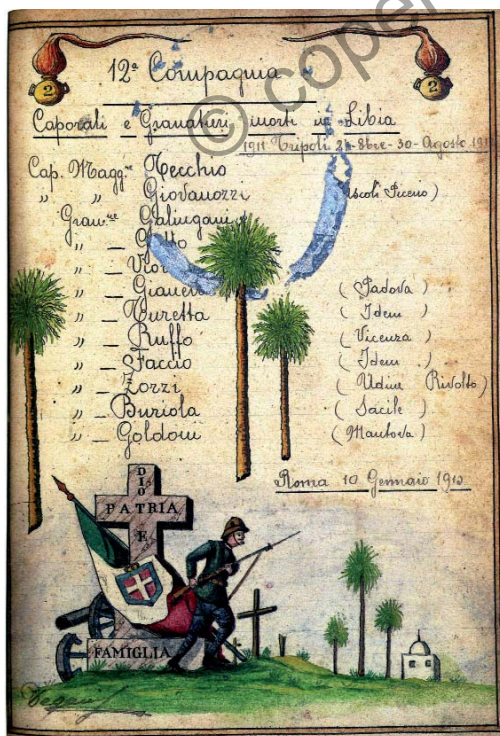 2 2
12ª Compagnia
Caporali e Granatieri morti in Libia
1911 Tripoli 8bre - 30 - Agosto
Cap. Magg.re Tecchio
" " Giovanozzi (Ascoli Piceno)
Gran.re Galingani
" —
" —
" —
" — Turetta (Idem)
" — Ruffo (Vicenza)
" — Faccio (Idem)
" — Zorzi (Udine Rivolto)
" — Buriola (Sacile)
" — Goldoni (Mantova)
(Padova)
Roma 10 Gennaio
DIO
PATRIA
E
FAMIGLIA
©